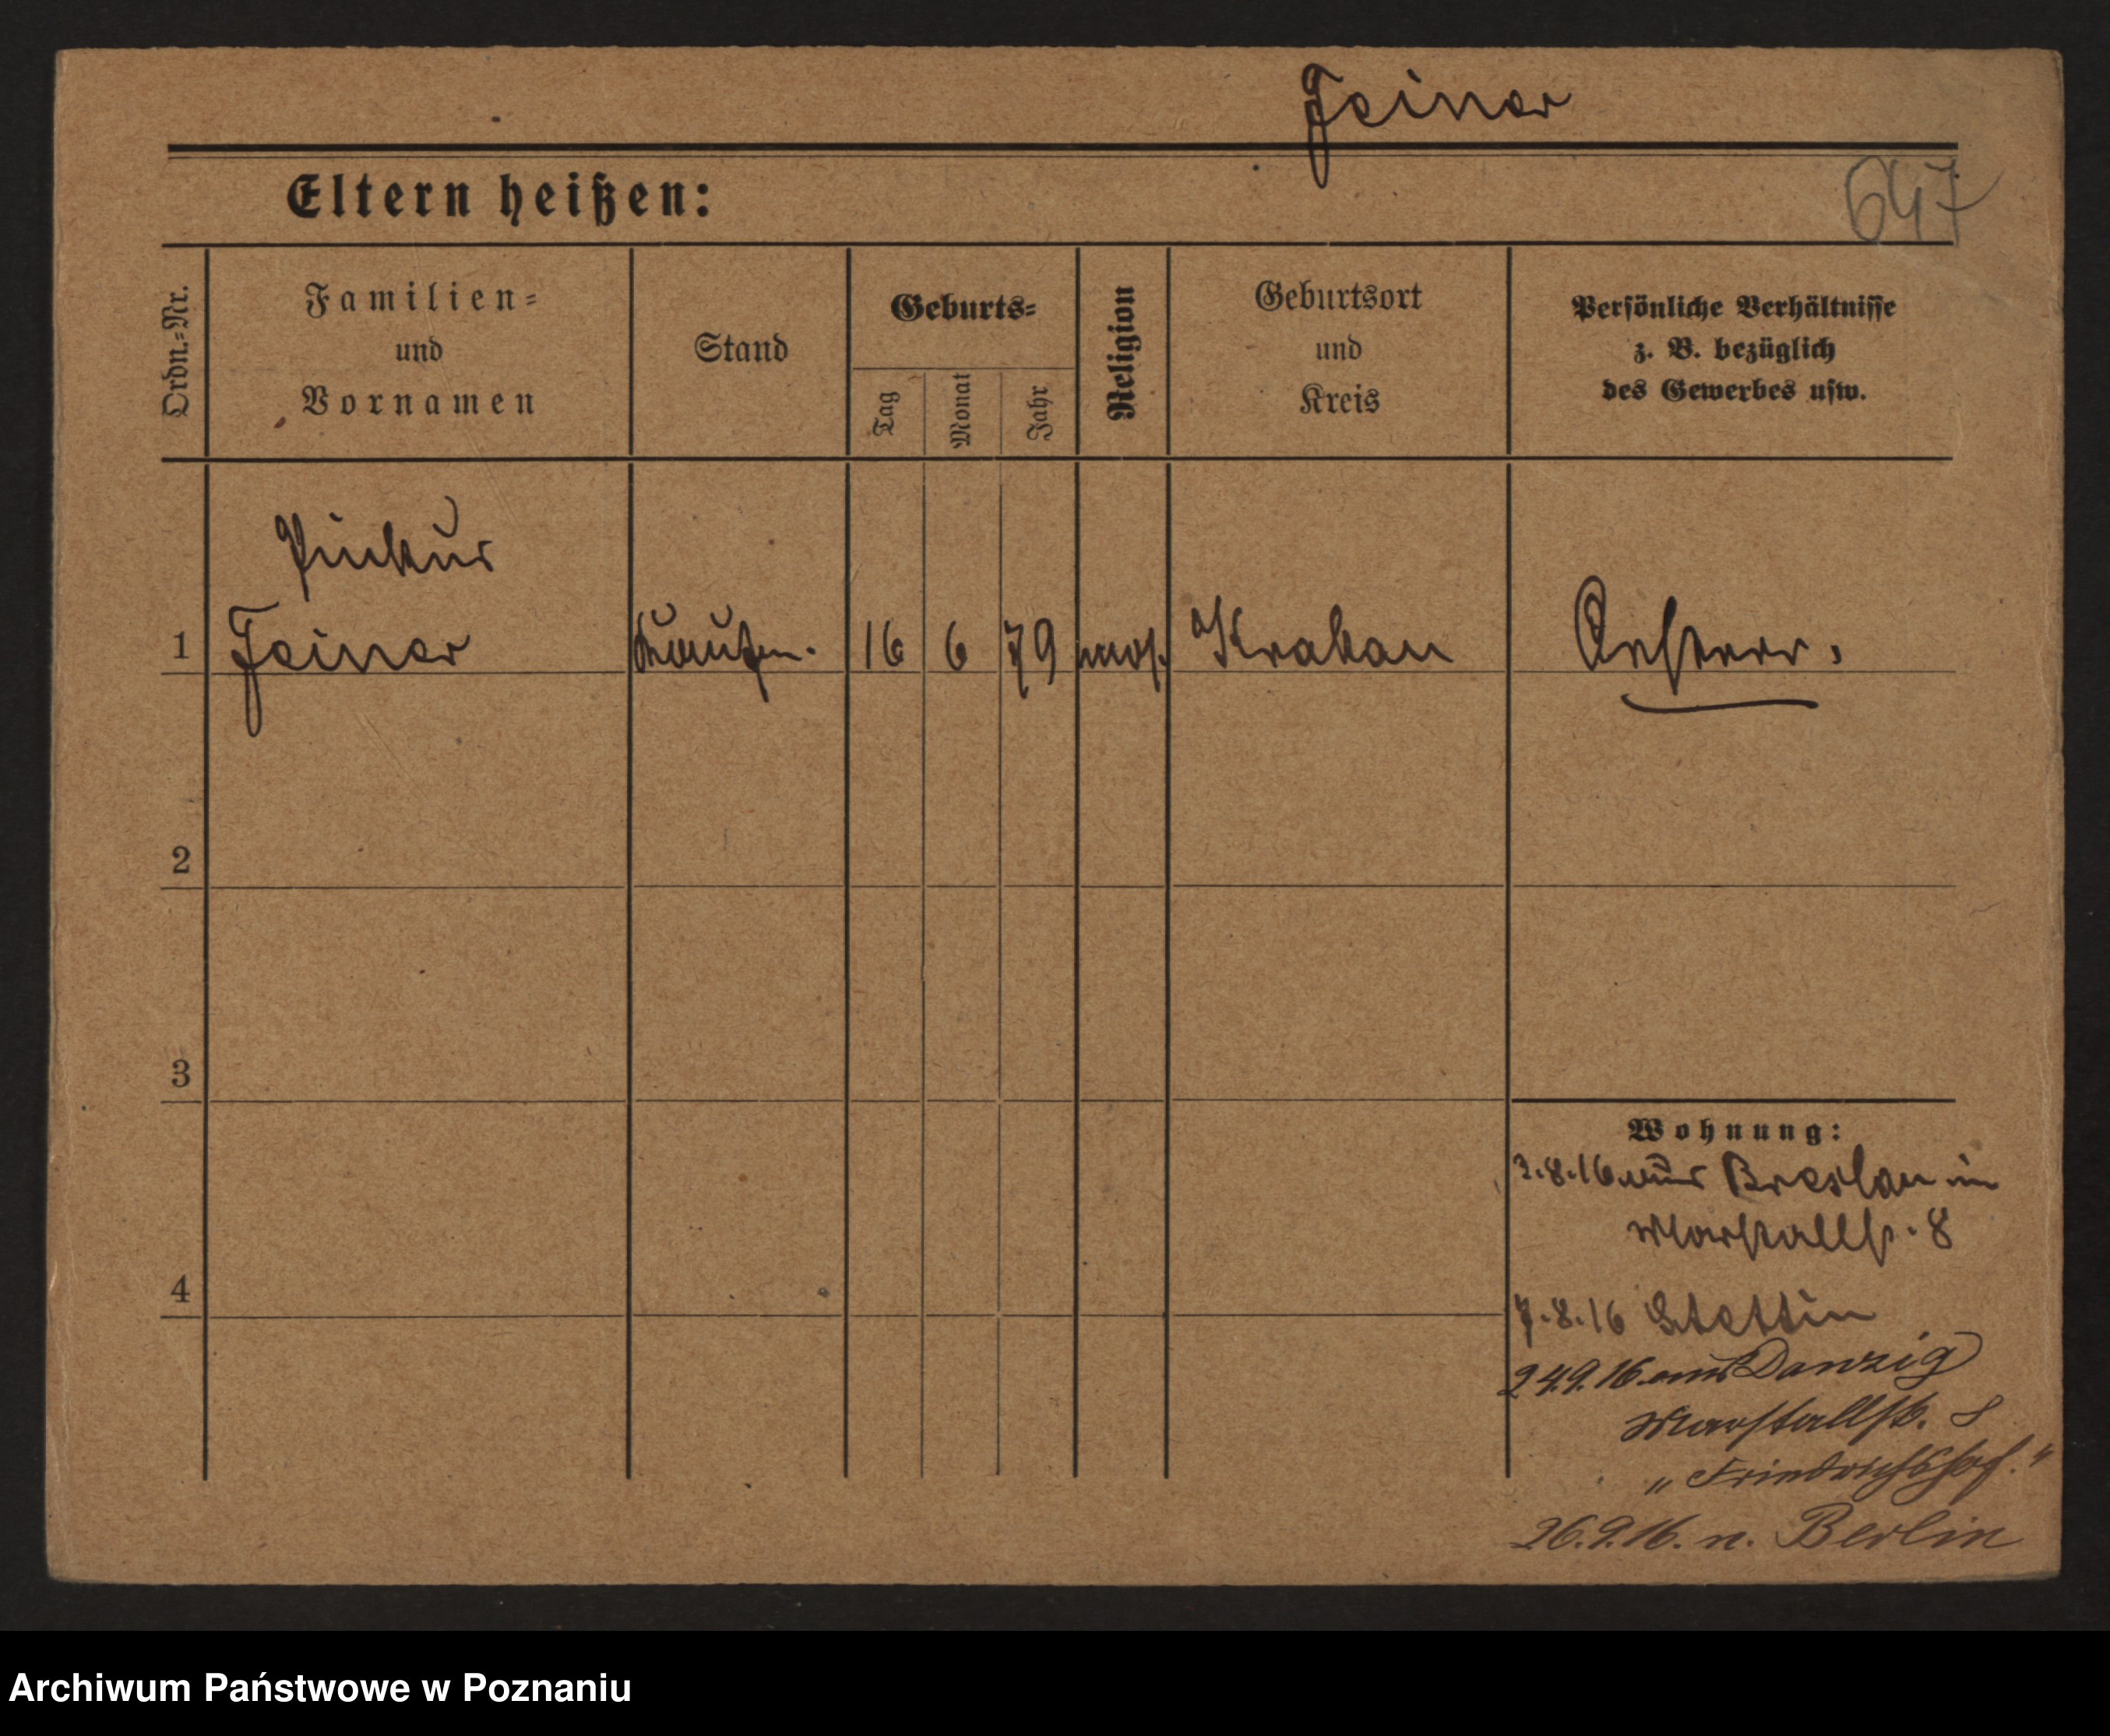 Feiner
647
Eltern heißen:
Ordn.-Nr.
Familien-
und
Vornamen
Stand
Geburts-
Tag
Monat
Jahr
Religion
Geburtsort
und
Kreis
Persönliche Verhältnisse
z. B. bezüglich
des Gewerbes usw.
Pinkus
1 Feiner Kaufm. 16 6 79 mos. Krakau Oesterr.
2
3
4
Wohnung:
2.8.16 aus Breslau in
Marstallstr. 8
7.8.16 Stettin
24.9.16 aus Danzig
Marstallstr. 8
„Friedrichshof."
26.9.16. n. Berlin
Archiwum Państwowe w Poznaniu